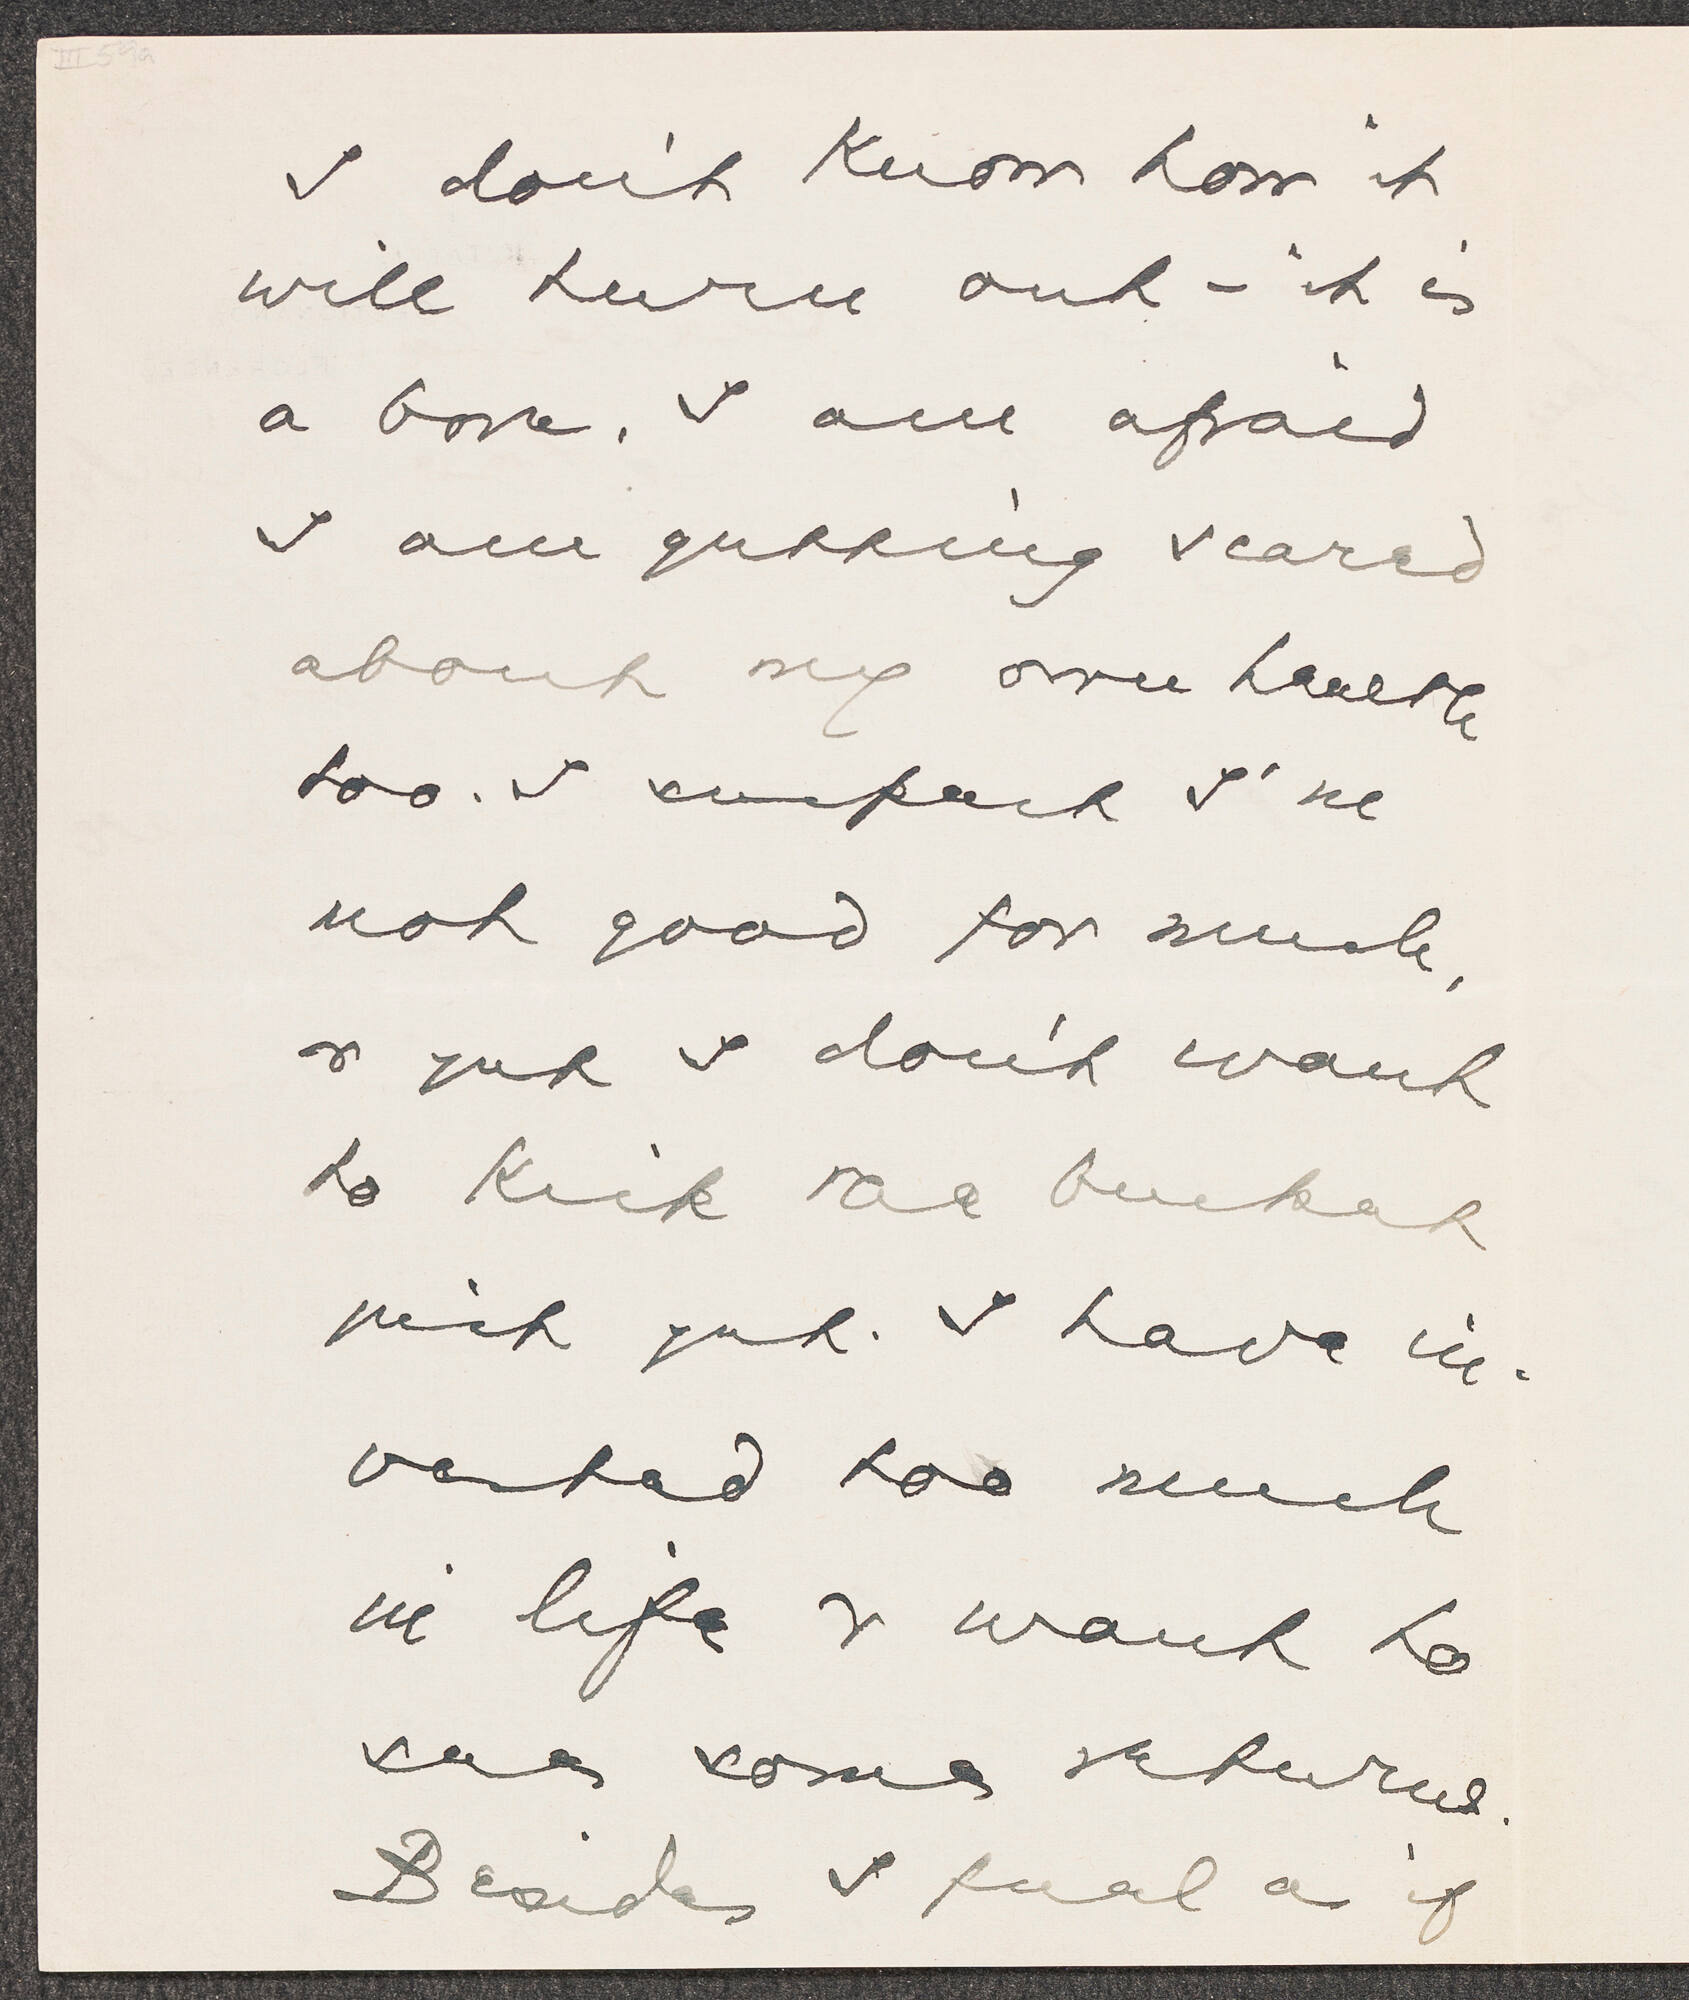 III 59a
I don't know how it
will turn out – it is
a bore. I am afraid
I am getting scared
about my own health
too. I suspect I'm
not good for much,
& yet I don't want
to kick the bucket
just yet. I have in-
vested too much
in life & want to
see some returns.
Besides I feel as if